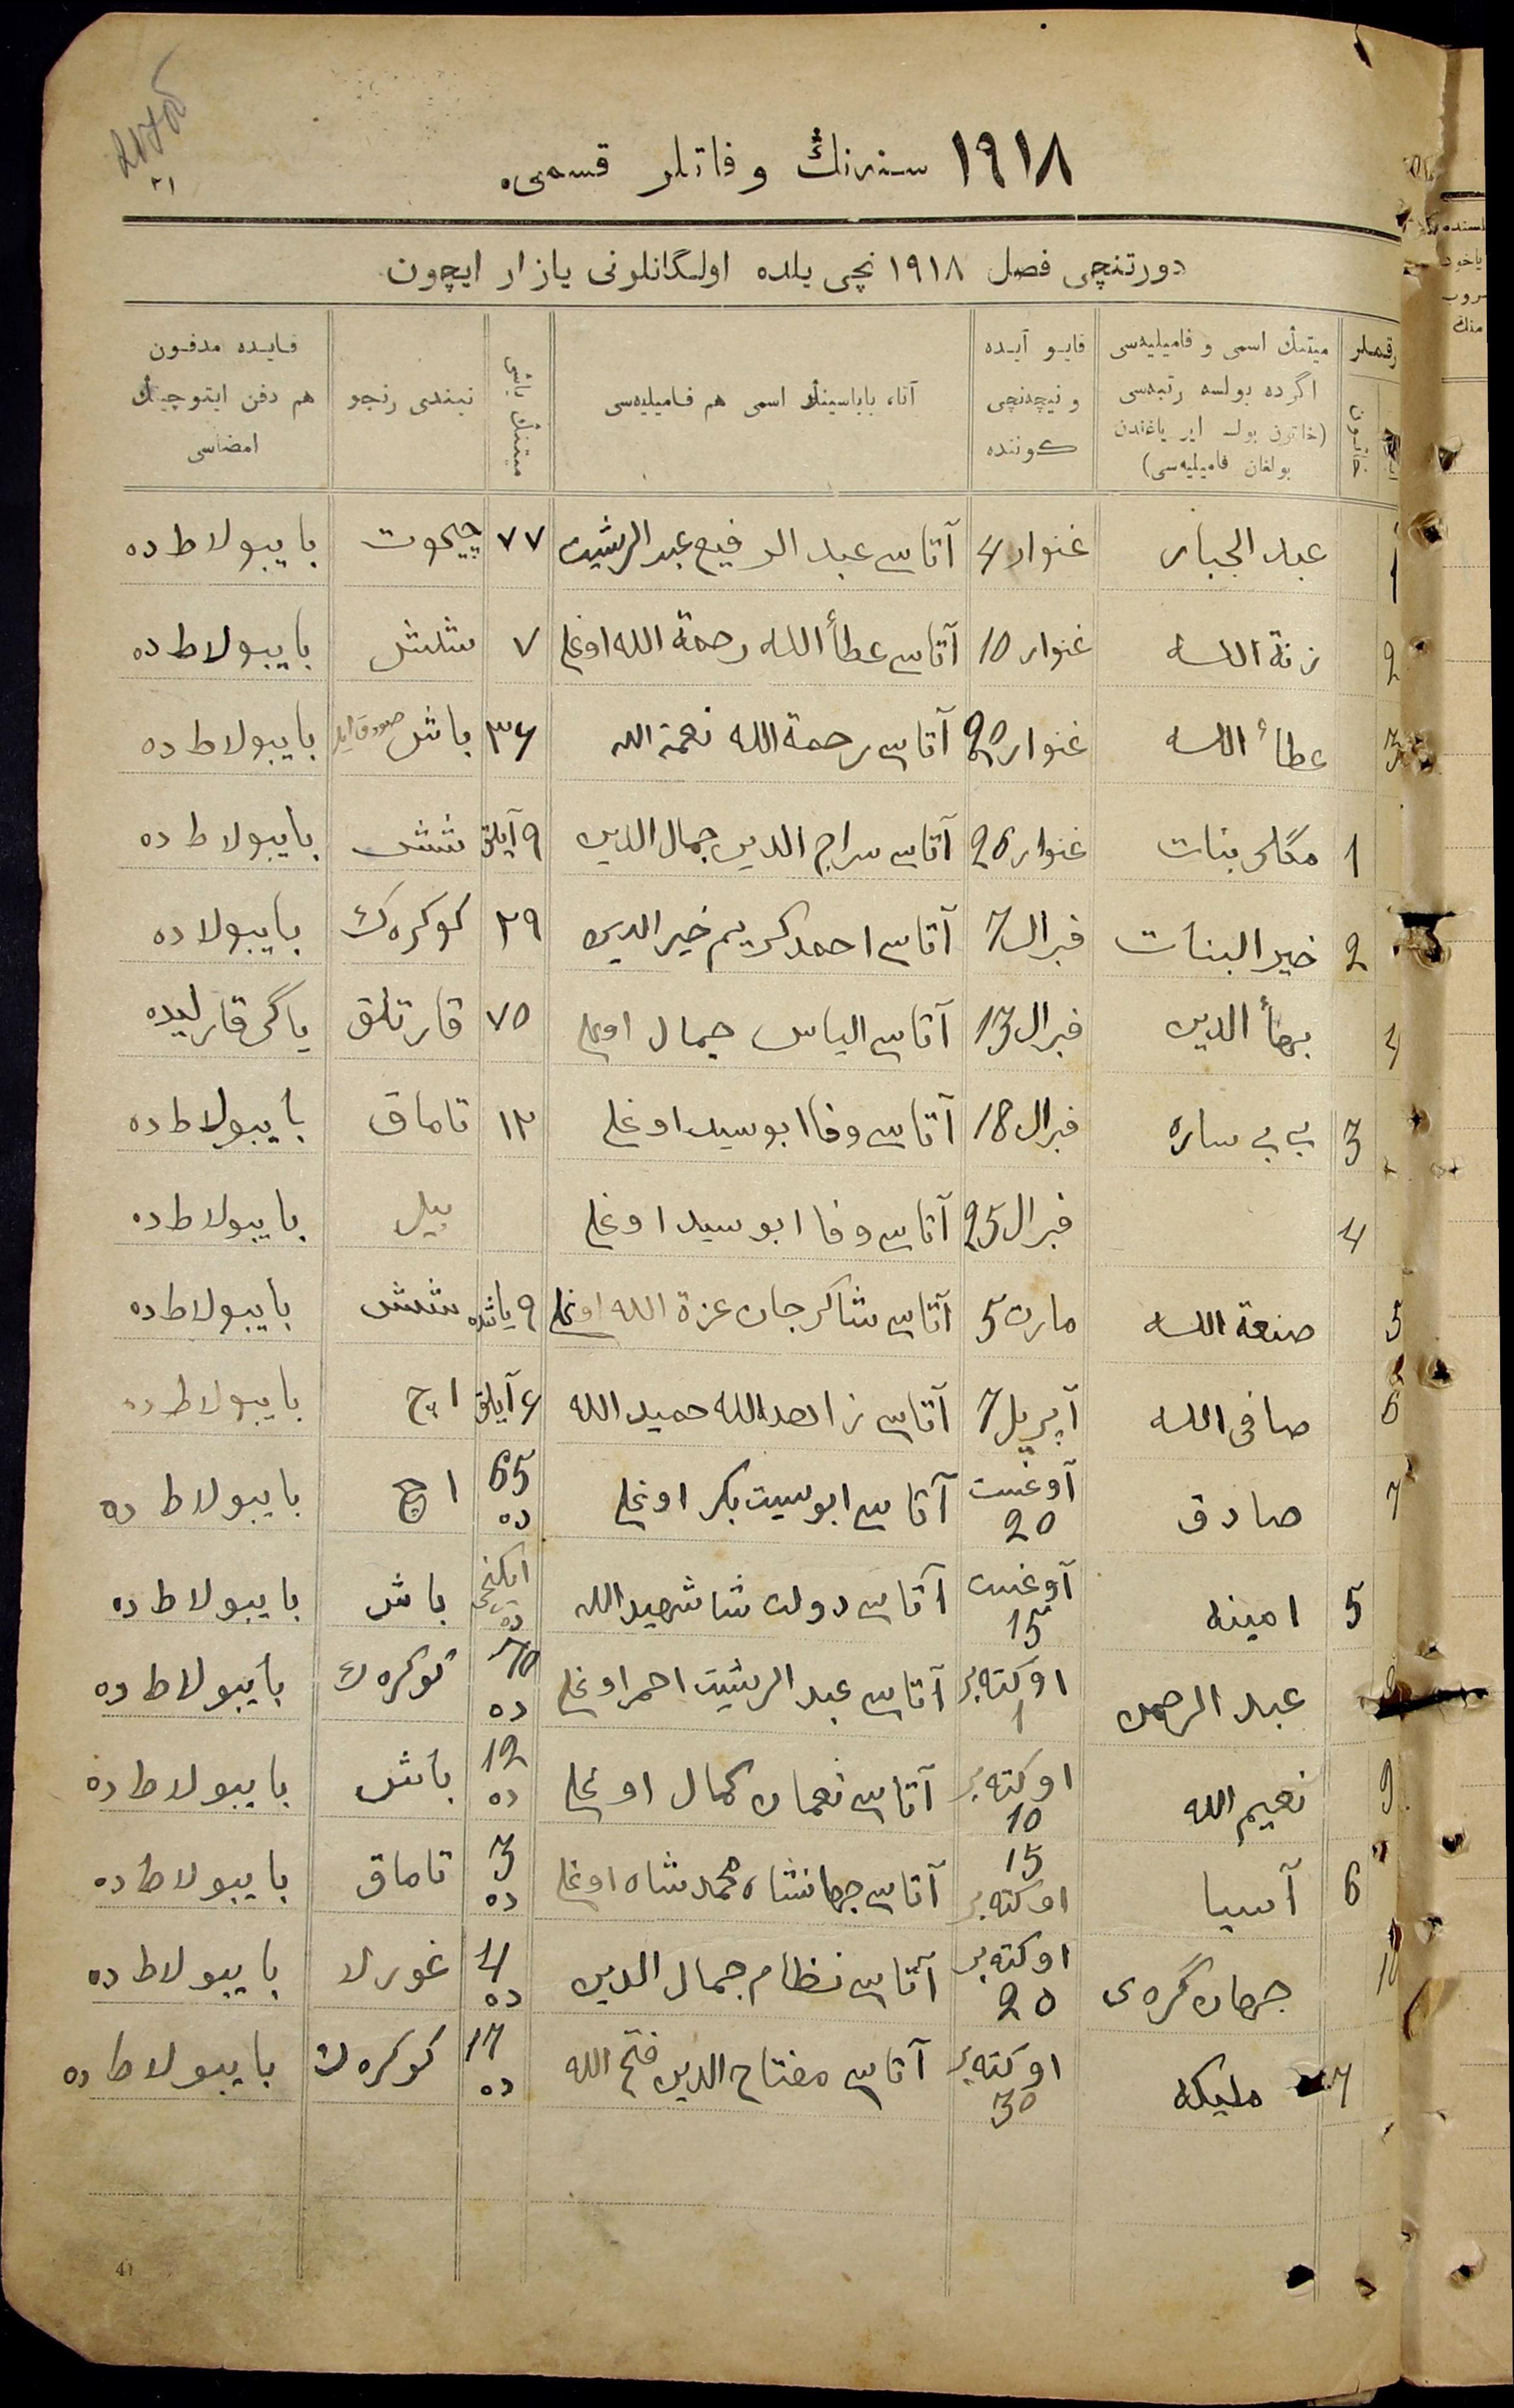 ۱۹۱۸ سنه‌نڭ وفاتلر قسمی.
دورتنچی فصل ۱۹۱۸ نچی یلده اولگانلرنی یازار ایچون
رقملر
خاتون
میتنڭ اسمی و فامیلیه‌سی
اگرده بولسه رتبه‌سی
(خاتون بولسه ایر یاغندن
بولغان فامیلیه‌سی)
قایو آیده
و نیچه‌نچی
کوننده
آتا، باباسینڭ اسمی هم فامیلیه‌سی
میتنڭ یاشی
نیندی رنجو
قایده مدفون
هم دفن ایتوچینڭ
امضاسی
1 عبد الجبار غنوار 4 آتاسی عبد الرفیع عبد الرشیت ۷۷ بایبولاط ده
2 زنة الله غنوار 10 آتاسی عطأ الله رحمة الله اوغلی ۷ شلش بایبولاط ده
3 عطأ الله غنوار 20 آتاسی رحمة الله نعمة الله ۳۶ باش بایبولاط ده
1 بنات غنوار 26 آتاسی سراج الدین جمال الدین ۹ آیلق شش بایبولاط ده
2 خیر البنات فبرال 7 آتاسی احمد کریم خیر الدین ۲۹ کوکره ک بایبولا ده
4 بهأ الدین فبرال 13 آتاسی الیاس جمال اوغلی ۷۵ قارتلق یاڭی قارلیده
3 بی بی ساره فبرال 18 آتاسی وفا ابو سید اوغلی ۱۲ تاماق بایبولاط ده
4 فبرال 25 آتاسی وفا ابو سید اوغلی بیل بایبولاط ده
5 صنعة الله مارت 5 آتاسی شاکر جان عزة الله اوغلی ۹ یاشده شش بایبولاط ده
6 صافی الله آپریل 7 آتاسی زاهد الله حمید الله ۶ آیلق اچ بایبولاط ده
7 صادق آوغست 20 آتاسی ابو سیت بکر اوغلی 65 ده اچ بایبولاط ده
5 امینه آوغست 15 آتاسی دولت شا شهید الله ایکنچی ده باش بایبولاط ده
8 عبد الرحمن اوکته بر 1 آتاسی عبد الرشیت احمر اوغلی 70 ده کوکره ک بایبولاط ده
9 نعیم الله اوکته بر 10 آتاسی نعمان کمال اوغلی 12 ده باش بایبولاط ده
6 آسیا 15 اوکته بر آتاسی جهانشاه محمد شاه اوغلی 3 ده تاماق بایبولاط ده
10 جهان گره ی اوکته بر 20 آتاسی نظام جمال الدین 4 ده غورلا بایبولاط ده
7 ملیکه اوکته بر 30 آتاسی مفتاح الدین فتح الله 17 ده کوکره ک بایبولاط ده
41